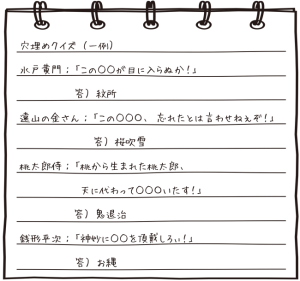 穴埋めクイズ(一例)
水戸黄門;「この〇〇が目に入らぬか!」
答)紋所
遠山の金さん;「この〇〇〇、忘れたとは言わせねえぞ!」
答)桜吹雪
桃太郎侍;「桃から生まれた桃太郎、
天に代わって〇〇〇いたす!」
答)鬼退治
銭形平次;「神妙に〇〇を頂戴しろぃ!」
答)お縄